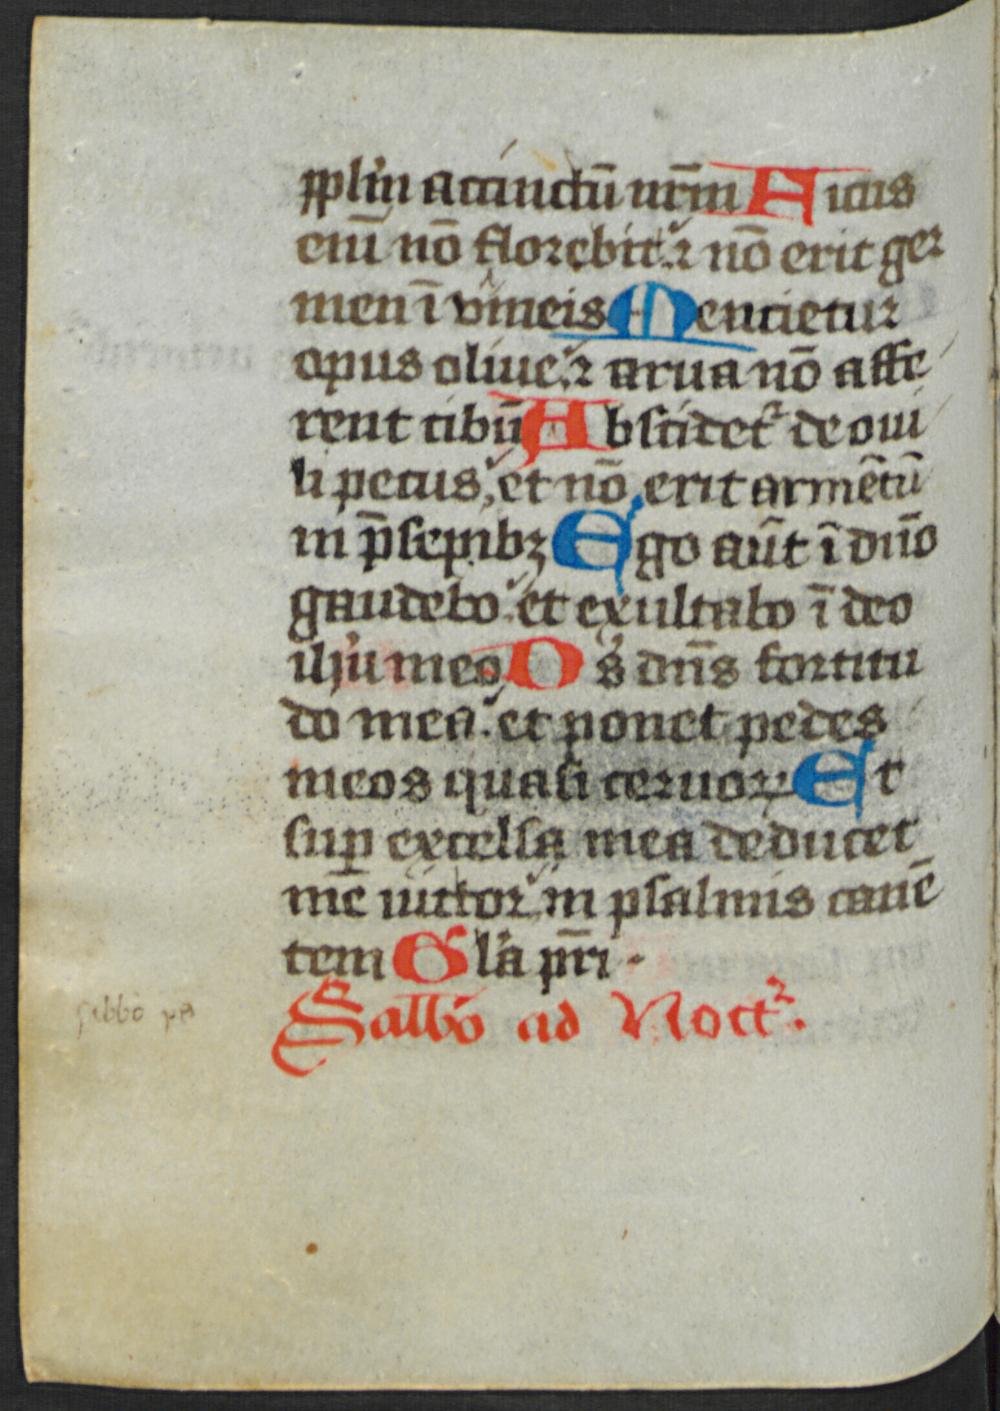 pplm̄ accinctū nr̄m Ficus
enī nō florebit: ⁊ nō erit ger
men ī vineis Mencietur
opus oliue: ⁊ arua nō affe
rent cibū Abscidet᷑ de oui
li pecus: et nō erit armētū
in p̄sepibꝫ Ego aūt ī dn̄o
gaudebo: et exultabo ī deo
ih̄u meo Ds̄ dn̄s fortitu
do mea: et ponet pedes
meos quasi ceruoꝝ Et
suꝑ excelsa mea deducet
mē victor: in psalmis canē
tem Gla pr̄i ·
Sabbō ad Noct᷑.
sabbō